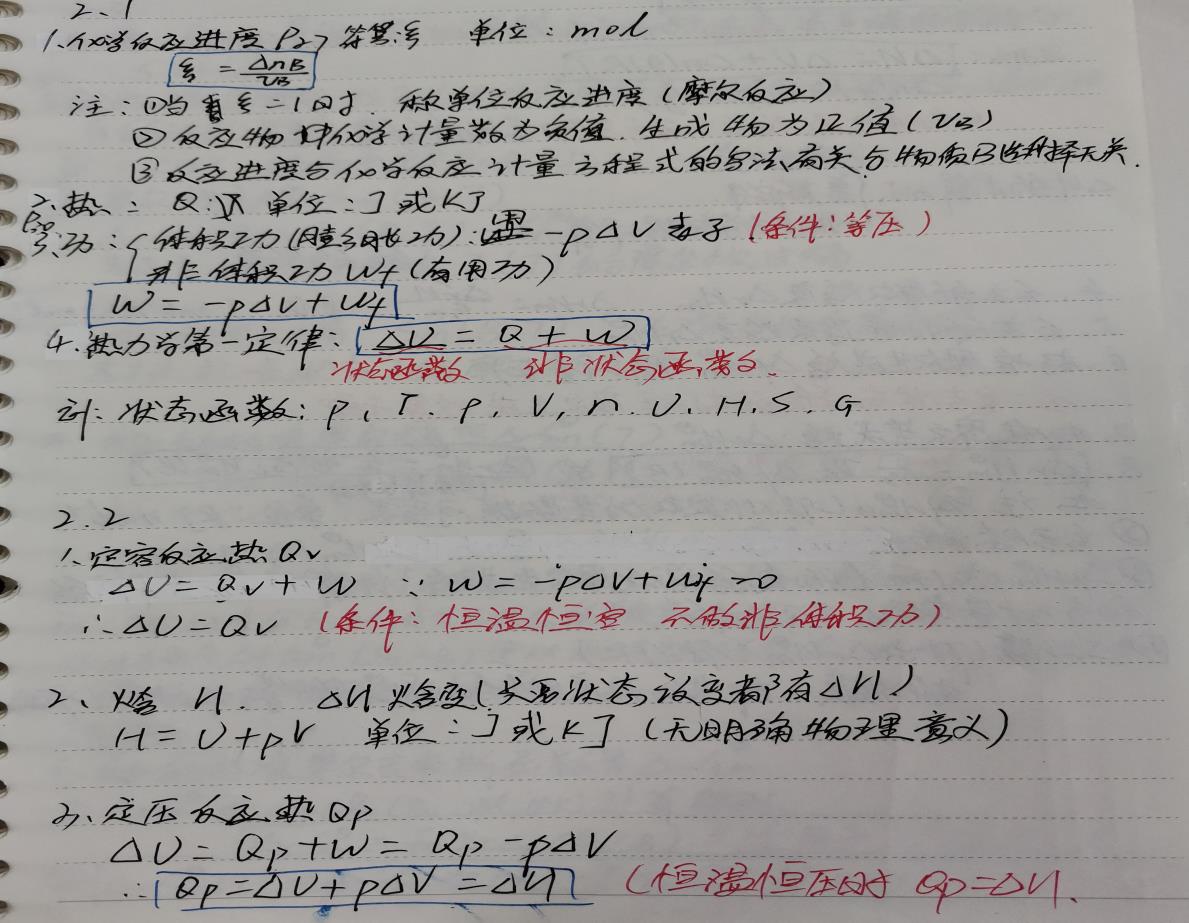 2.1
1、化学反应进度 P27 符号ξ 单位：mol
ξ = ΔnB/νB
注：①当 ξ=1时，称单位反应进度（摩尔反应）
②反应物 化学计量数为负值，生成物为正值（νB）
③反应进度与化学反应计量方程式的写法有关与物质B选择无关.
2、热： Q： 单位：J或KJ
3、功：{体积功(膨胀功)： -pΔV 表示 (条件：等压)
非体积功Wf (有用功)
W = -pΔV + Wf
4、热力学第一定律： ΔU = Q + W
状态函数 非状态函数.
注：状态函数：P、T、ρ、V、n、U、H、S、G
2.2
1、定容反应热Qv
ΔU = Qv + W ∵ W = -pΔV + Wf = 0
∴ ΔU = Qv (条件：恒温恒容 不做非体积功)
2、焓 H. ΔH 焓变(只要状态改变都有ΔH)
H = U + pV 单位：J或KJ (无明确物理意义)
3、定压反应热Qp
ΔU = Qp + W = Qp - pΔV
∴ Qp = ΔU + pΔV = ΔH (恒温恒压时 Qp = ΔH.